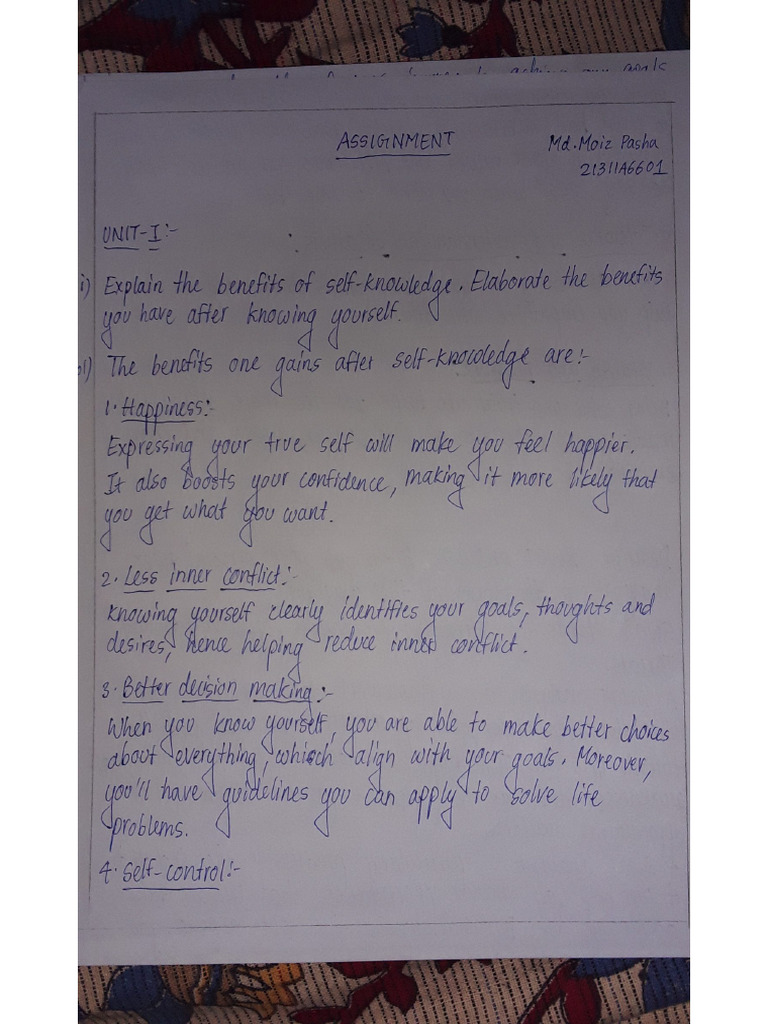 ASSIGNMENT
Md. Moiz Pasha
21311A6601
UNIT-I:-
i) Explain the benefits of self-knowledge. Elaborate the benefits
you have after knowing yourself.
The benefits one gains after self-knowledge are:-
1. Happiness:-
Expressing your true self will make you feel happier.
It also boosts your confidence, making it more likely that
you get what you want.
2. Less inner conflict:-
Knowing yourself clearly identifies your goals, thoughts and
desires, hence helping reduce inner conflict.
3. Better decision making:-
When you know yourself, you are able to make better choices
about everything, which align with your goals. Moreover,
you'll have guidelines you can apply to solve life
problems.
4. Self-control:-